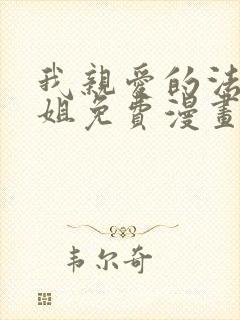 我親愛的法
姐免費漫畫
韦尔奇